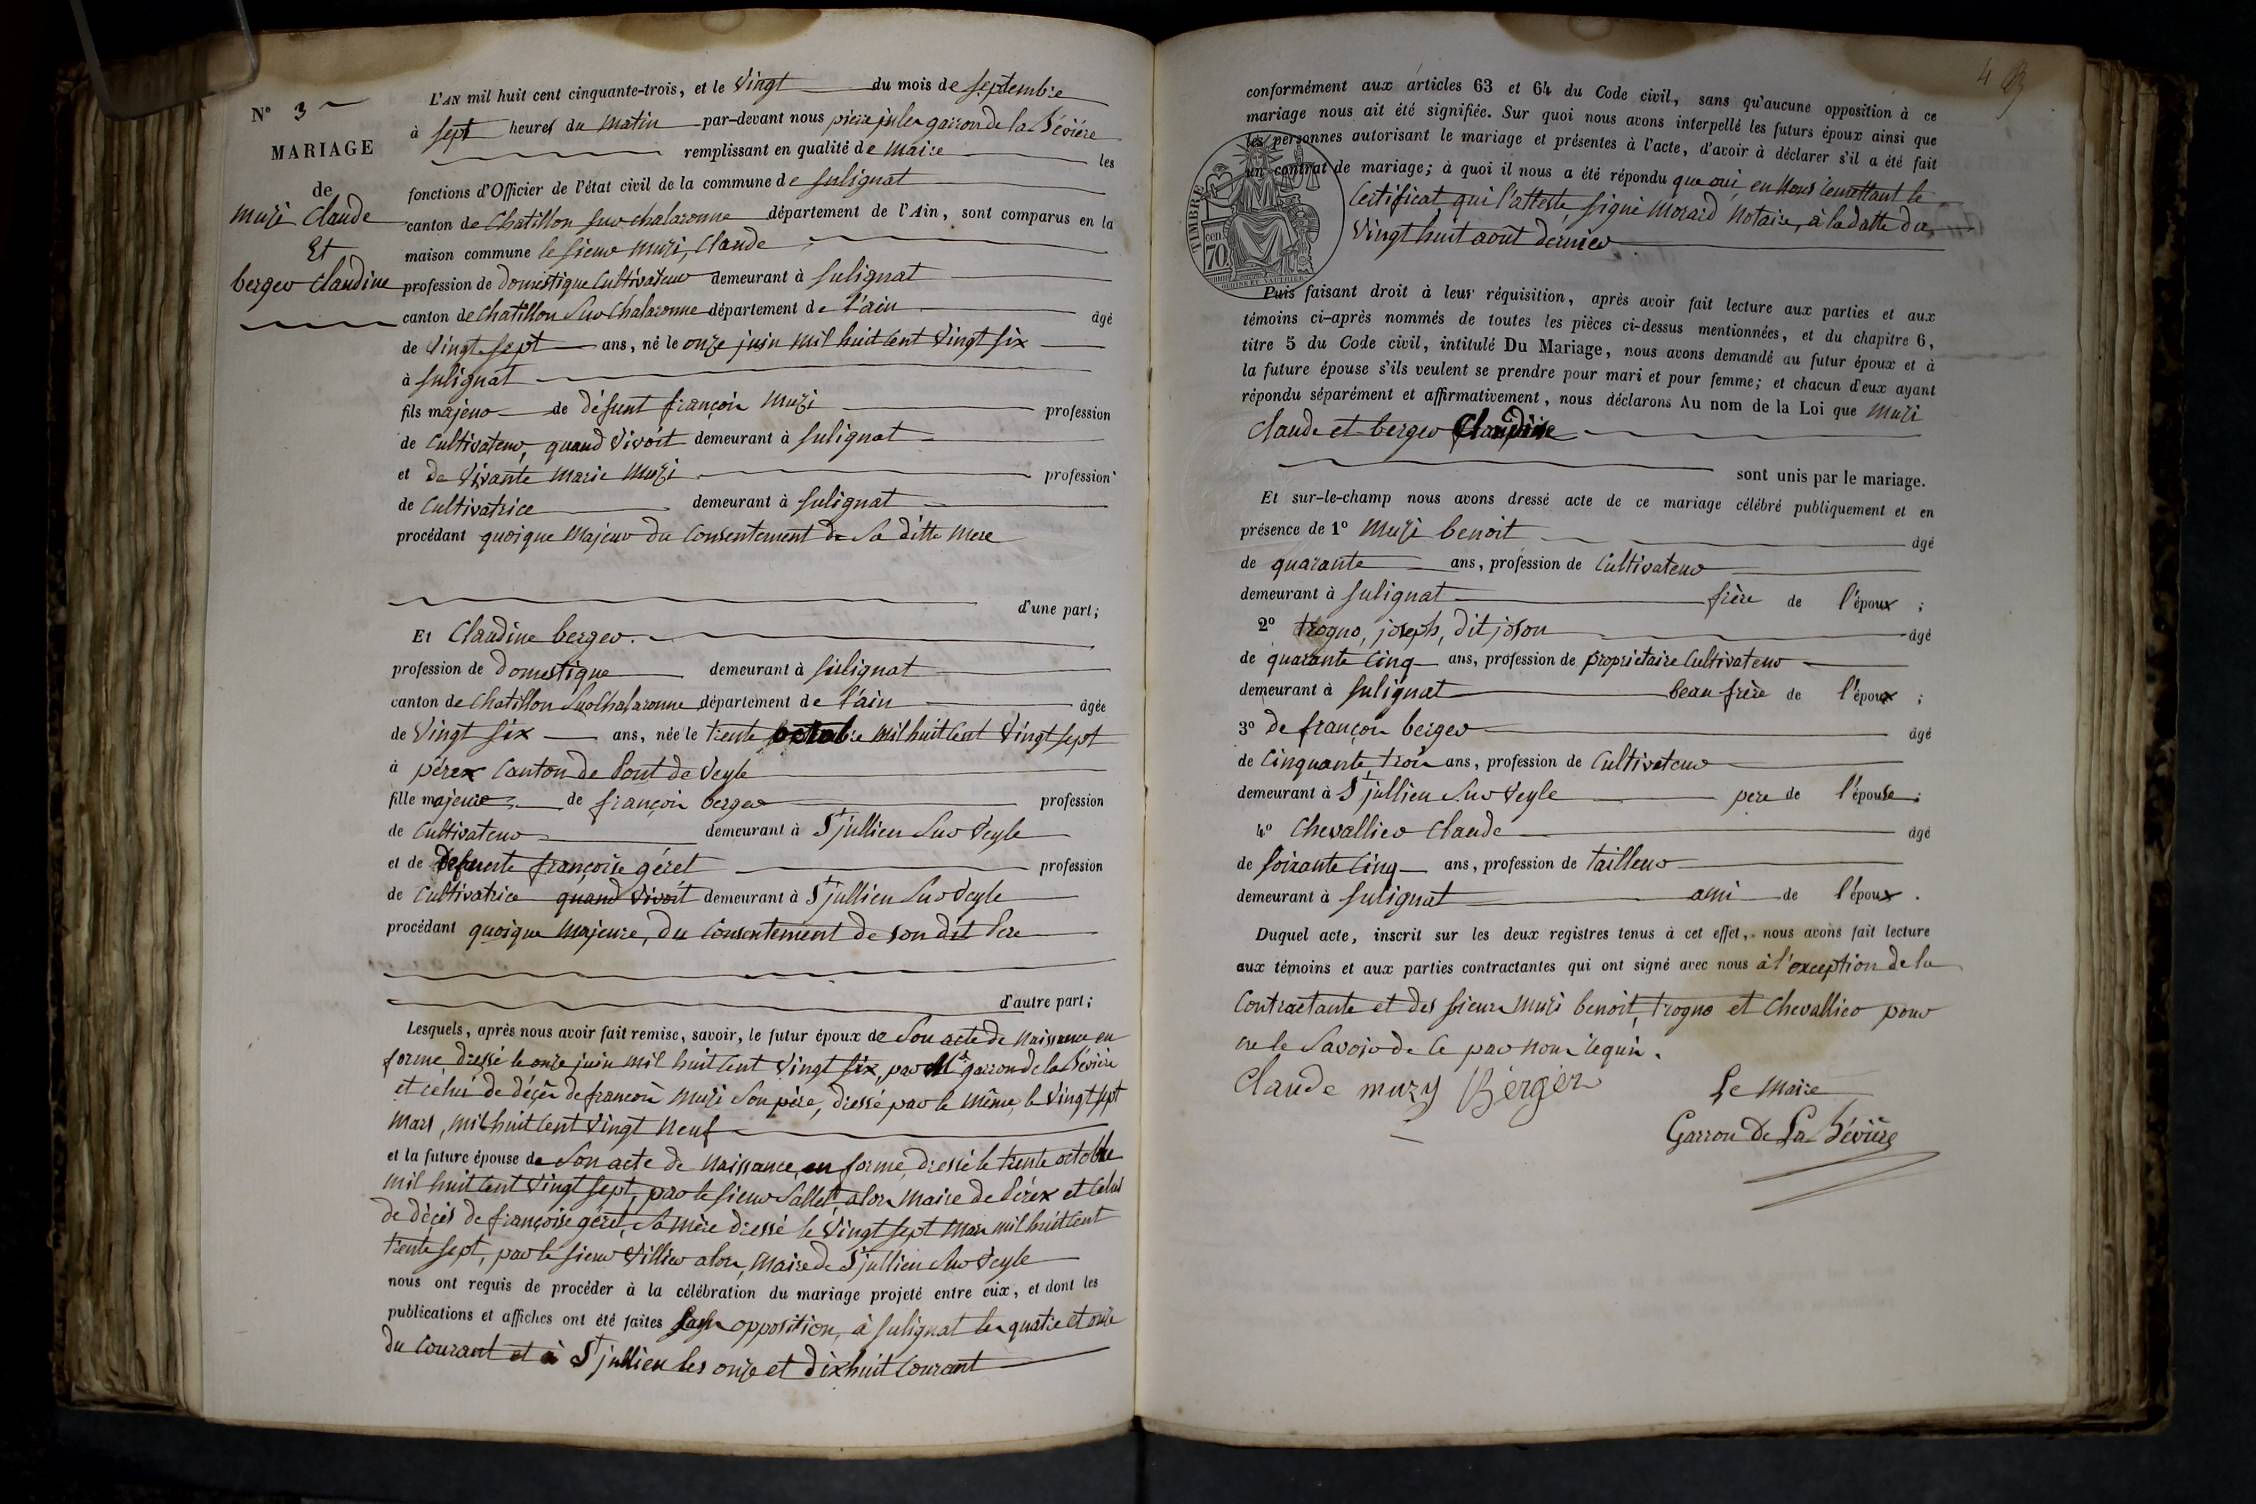 N° 3
MARIAGE
de
Muzi Claude
Et
berger Claudine
L'AN mil huit cent cinquante-trois, et le Vingt du mois de septembre
à sept heures du matin par-devant nous pierre jules garron de la Bévière
remplissant en qualité de maire les
fonctions d'Officier de l'état civil de la commune de sulignat
canton de Chatillon sur chalaronne département de l'Ain, sont comparus en la
maison commune le sieur Muzi, Claude
profession de domestique Cultivateur demeurant à sulignat
canton de Chatillon Sur Chalaronne département de l'ain âgé
de Vingt sept ans, né le onze juin mil huit cent Vingt six
à sulignat
fils majeur de défunt françois Muzi profession
de Cultivateur, quand Vivoit demeurant à sulignat
et de Vivante Marie Muzi profession
de Cultivatrice demeurant à sulignat
procédant quoique Majeur du Consentement de Sa ditte Mere
d'une part;
Et Claudine berger.
profession de domestique demeurant à sulignat
canton de Chatillon Sur Chalaronne département de l'ain âgée
de Vingt six ans, née le trente octobre mil huit Cent Vingt sept
à pérex Canton de Pont de Veyle
fille majeure de françois berger profession
de Cultivateur demeurant à St jullien Sur Veyle
et de Defuente françoise géret profession
de Cultivatrice quand Vivoit demeurant à St jullien Sur Veyle
procédant quoique Majeure, du Consentement de son dit Pere
d'autre part;
Lesquels, après nous avoir fait remise, savoir, le futur époux de Son acte de Naissance en
forme, dressé le onze juin mil huit Cent Vingt six, par Mr garron de la Bévière
et celui de décès de françois Muzi Son père, dressé par le même, le Vingt sept
Mars, mil huit Cent Vingt Neuf
et la future épouse de Son acte de Naissance, en forme, dressé le trente octobre
mil huit Cent Vingt sept, par le sieur Sallet, alors Maire de Pérex et Celui
de décès de françoise géret, Sa Mère dressé le Vingt sept Mars mil huit Cent
trente sept, par le sieur Villier alors, Maire de St jullien Sur Veyle
nous ont requis de procéder à la célébration du mariage projeté entre eux, et dont les
publications et affiches ont été faites Sans opposition, à sulignat les quatre et onze
du Courant et à St jullien les onze et dix huit Courant
conformément aux articles 63 et 64 du Code civil, sans qu'aucune opposition à ce
mariage nous ait été signifiée. Sur quoi nous avons interpellé les futurs époux ainsi que
les personnes autorisant le mariage et présentes à l'acte, d'avoir à déclarer s'il a été fait
un contrat de mariage; à quoi il nous a été répondu que oui, en Nous remettant le
Certificat qui l'atteste, signé Morard Notaire, à la datte du
Vingt huit août dernier
TIMBRE
cen.
70.
Puis faisant droit à leur réquisition, après avoir fait lecture aux parties et aux
témoins ci-après nommés de toutes les pièces ci-dessus mentionnées, et du chapitre 6,
titre 5 du Code civil, intitulé Du Mariage, nous avons demandé au futur époux et à
la future épouse s'ils veulent se prendre pour mari et pour femme; et chacun d'eux ayant
répondu séparément et affirmativement, nous déclarons Au nom de la Loi que Muzi
Claude et berger Claudine
sont unis par le mariage.
Et sur-le-champ nous avons dressé acte de ce mariage célébré publiquement et en
présence de 1° Muzi benoit âgé
de quarante ans, profession de Cultivateur
demeurant à sulignat frère de l'époux ;
2° trogno, joseph, dit joson âgé
de quarante Cinq ans, profession de propriétaire Cultivateur
demeurant à sulignat beau frère de l'époux ;
3° de françois berger âgé
de Cinquante trois ans, profession de Cultivateur
demeurant à St jullien Sur Veyle pere de l'épouse ;
4° Chevallier Claude âgé
de soixante Cinq ans, profession de tailleur
demeurant à sulignat ami de l'époux .
Duquel acte, inscrit sur les deux registres tenus à cet effet, nous avons fait lecture
aux témoins et aux parties contractantes qui ont signé avec nous à l'exception de la
Contractante et des sieurs Muzi benoit, trogno et Chevallier pour
ne le Savoir de Ce par Nous requis.
Claude muzy Bérger
Le Maire
Garron de La Bévière